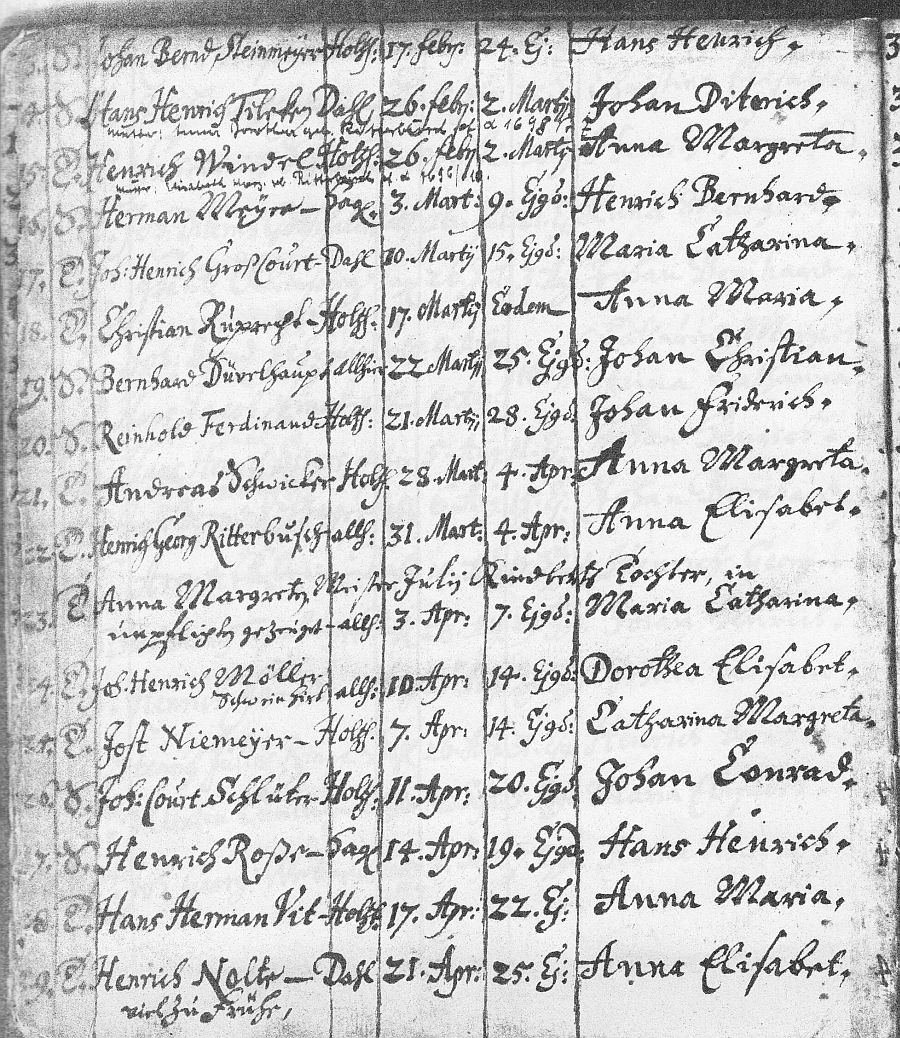 13. S. Johan Bernd Steinmeyer Holtzh: 17. febr: 24. Ej: Hans Henrich.
14. S. Hans Henrich Tileken Dahl 26. febr: 2. Martij Johan Diterich.
a 1698
15. T. Henrich Windel Holtzh: 26. febr 2. Martij Anna Margreta.
16. S. Herman Meyer – Hag. 3. Mart: 9. Ejqs: Henrich Bernhard.
17. T. Joh: Henrich Groß Court – Dahl 10. Martij 15. Ejqs: Maria Catharina.
18. T. Christian Ruprecht – Holtzh: 17. Martij Eodem Anna Maria.
19. S. Bernhard Düvelhaupt allhier 22 Martij 25. Ejqs: Johan Christian.
20. S. Reinhold Ferdinand Holtzh: 21. Martij 28. Ejqs: Johan Friderich.
21. T. Andreas Schwicker Holtzh. 28. Mart: 4. Apr: Anna Margreta.
22. T. Henrich Georg Ritterbusch – allh: 31. Mart: 4. Apr: Anna Elisabet.
Anna Margreten Meister Julij Rindberts Tochter, in
23. T unpflichten gezeuget – allh: 3. Apr: 7. Ejqs: Maria Catharina.
24. T. Joh. Henrich Möller allh: 10. Apr: 14. Ejqs: Dorothea Elisabet.
Schweinhirt
25. T. Jost Niemeyer – Holtzh. 7. Apr: 14. Ejqs: Catharina Margreta.
26. S. Joh: Court Schlüter Holtzh: 11. Apr: 20. Ejqs Johan Conrad.
27. S. Henrich Roße – Hag 14. Apr: 19. Ejqs Hans Henrich.
28. T. Hans Herman Vit – Holtzh 17. Apr: 22. Ej: Anna Maria.
29. T. Henrich Nolte – Dahl 21. Apr: 25. Ej: Anna Elisabet.
viel zu Frühe,